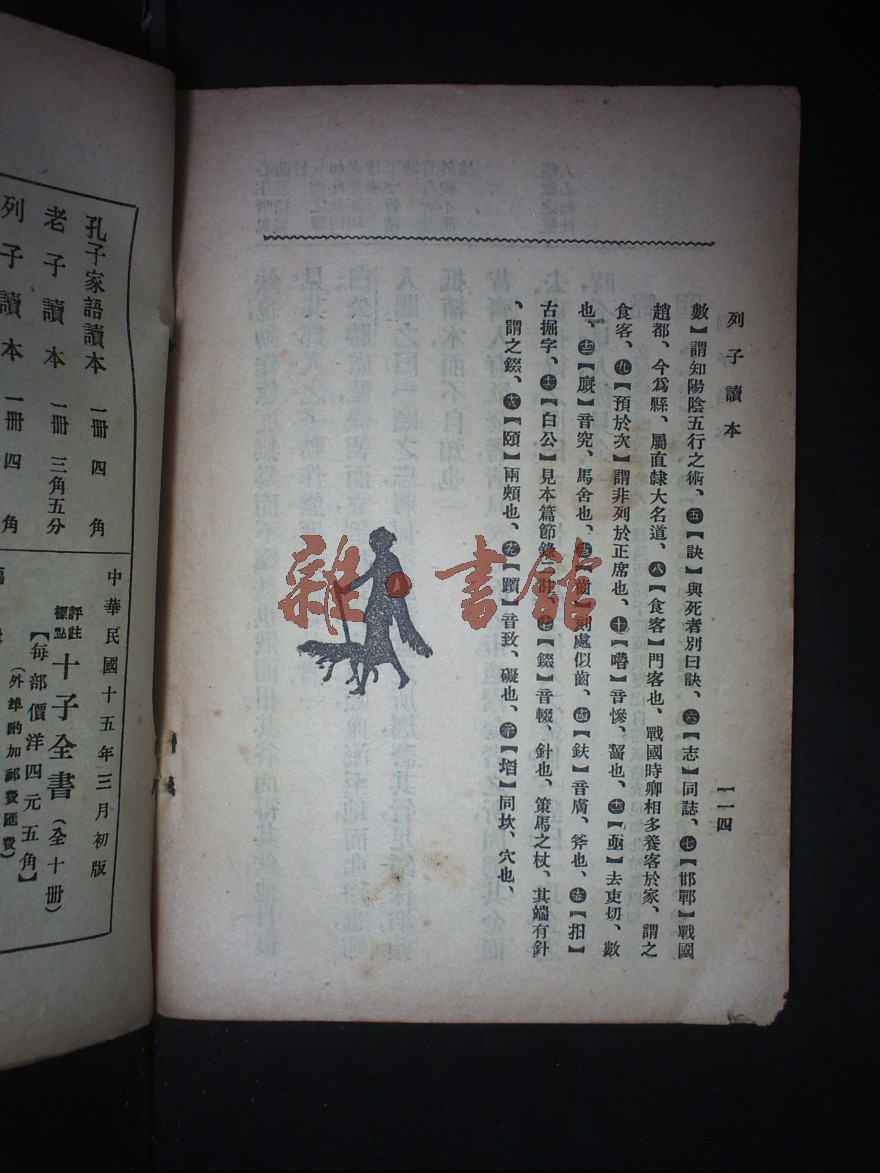 列子讀本
一一四
數】謂知陽陰五行之術、㊄【訣】與死者別曰訣、㊅【志】同誌、㊆【邯鄲】戰國
趙都、今爲縣、屬直隸大名道、㊇【食客】門客也、戰國時卿相多養客於家、謂之
食客、㊈【預於次】謂非列於正席也、㊉【噆】音慘、齧也、【亟】去吏切、數
也、【廄】音究、馬舍也、【齒】刻處似齒、【鈇】音膚、斧也、【抇】
古掘字、【白公】見本篇節錄二
【錣】音輟、針也、策馬之杖、其端有針
、謂之錣、【頤】兩頰也、【躓】音致、礙也、【埳】同坎、穴也、
雜·書館
孔子家語讀本 一冊 四角
老子讀本 一冊 三角五分
列子讀本 一冊 四角
中華民國十五年三月初版
評註標點 十子全書(全十冊)
【每部價洋四元五角】
(外埠酌加郵費匯費)